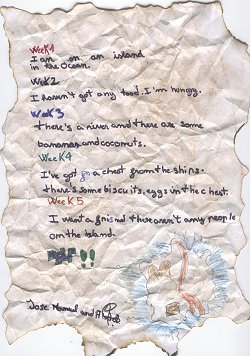 Week 1
I am on an island
in the Ocean.
Week 2
I haven't got any food. I'm hungry.
Week 3
there's a river and there are some
bananas and coconuts.
Week 4
I've got go a chest from the ships.
there's some biscuits, eggs in the chest.
Week 5
I want a friend there aren't any people
on the island.
!!
Jose Manuel and